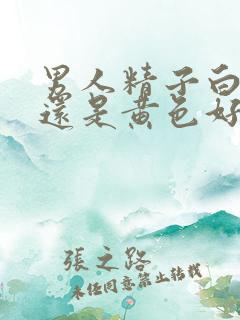 男人精子白
還是黄色好
張之路
未任同意禁止转载